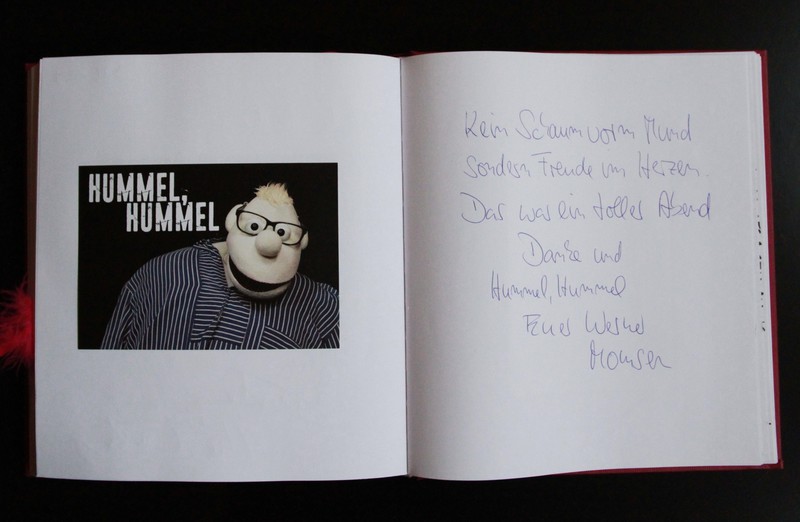 HUMMEL,
HUMMEL
Kein Schaum vorm Mund
sondern Freude im Herzen.
Das war ein toller Abend
Danke und
Hummel, Hummel
Euer Werner
Momsen